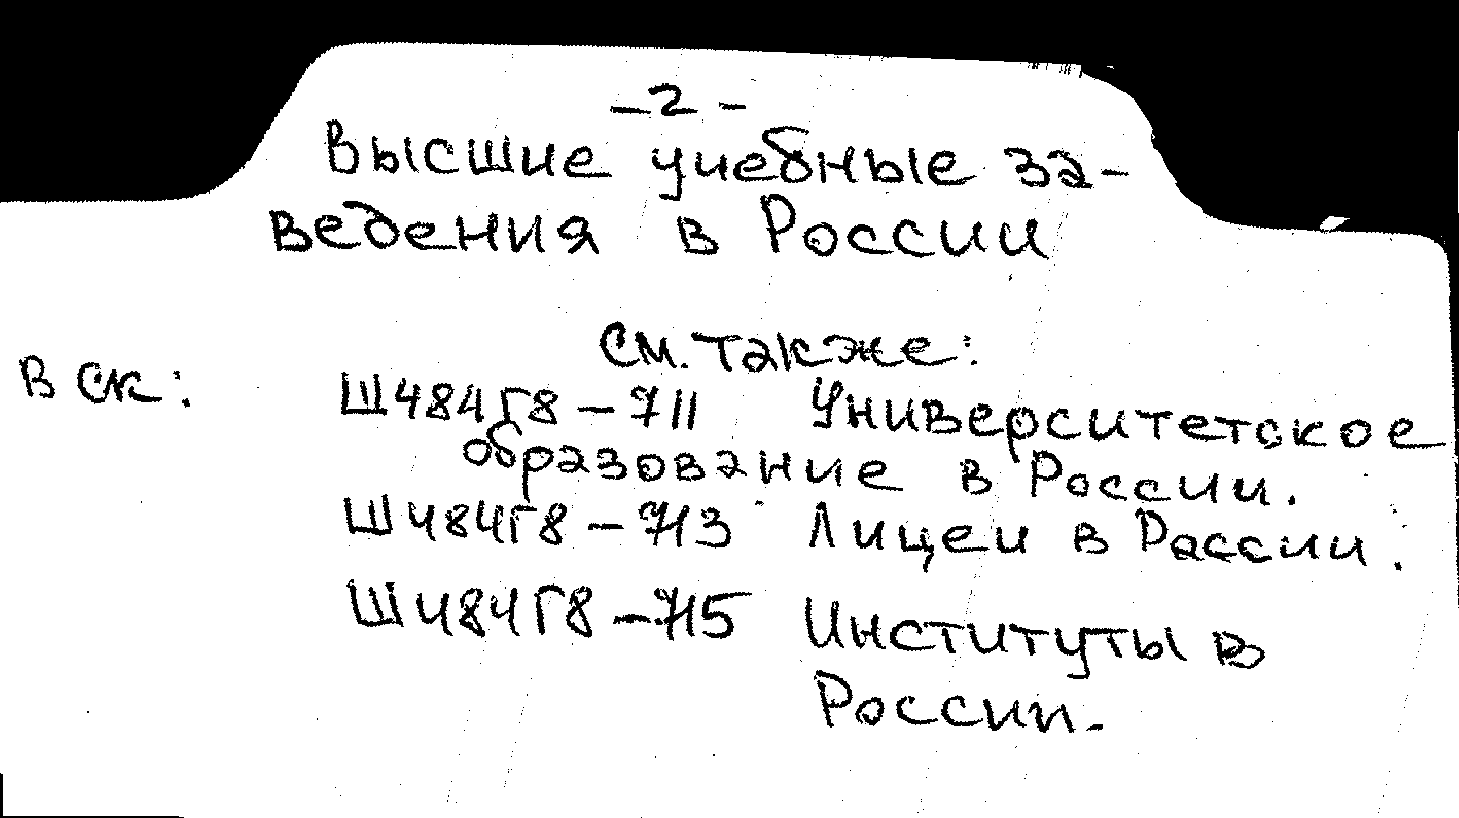 – 2 –
Высшие учебные за-
ведения в России
См. также:
В СК:
Ш484Г8 – 711 Университетское
образование в России.
Ш484Г8 – 713 Лицеи в России.
Ш484Г8 – 715 Институты в
России.